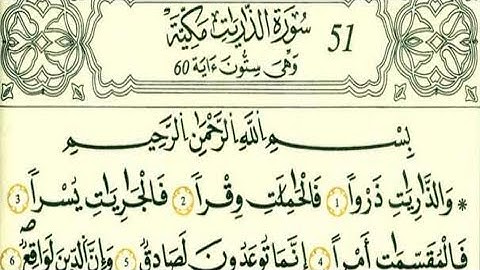 51 سُورَةُ الذَّارِيَاتِ مَكِّيَّةٌ
وَهْيَ سِتُّونَ ءَايَة 60
بِسْمِ اللَّهِ الرَّحْمَٰنِ الرَّحِيمِ
* وَالذَّارِيَاتِ ذَرْواً 1 فَالْحَامِلَاتِ وِقْراً 2 فَالْجَارِيَاتِ يُسْراً 3
فَالْمُقَسِّمَاتِ أَمْراً 4 إِنَّمَا تُوعَدُونَ لَصَادِقٌ 5 وَإِنَّ الدِّينَ لَوَاقِعٌ 6